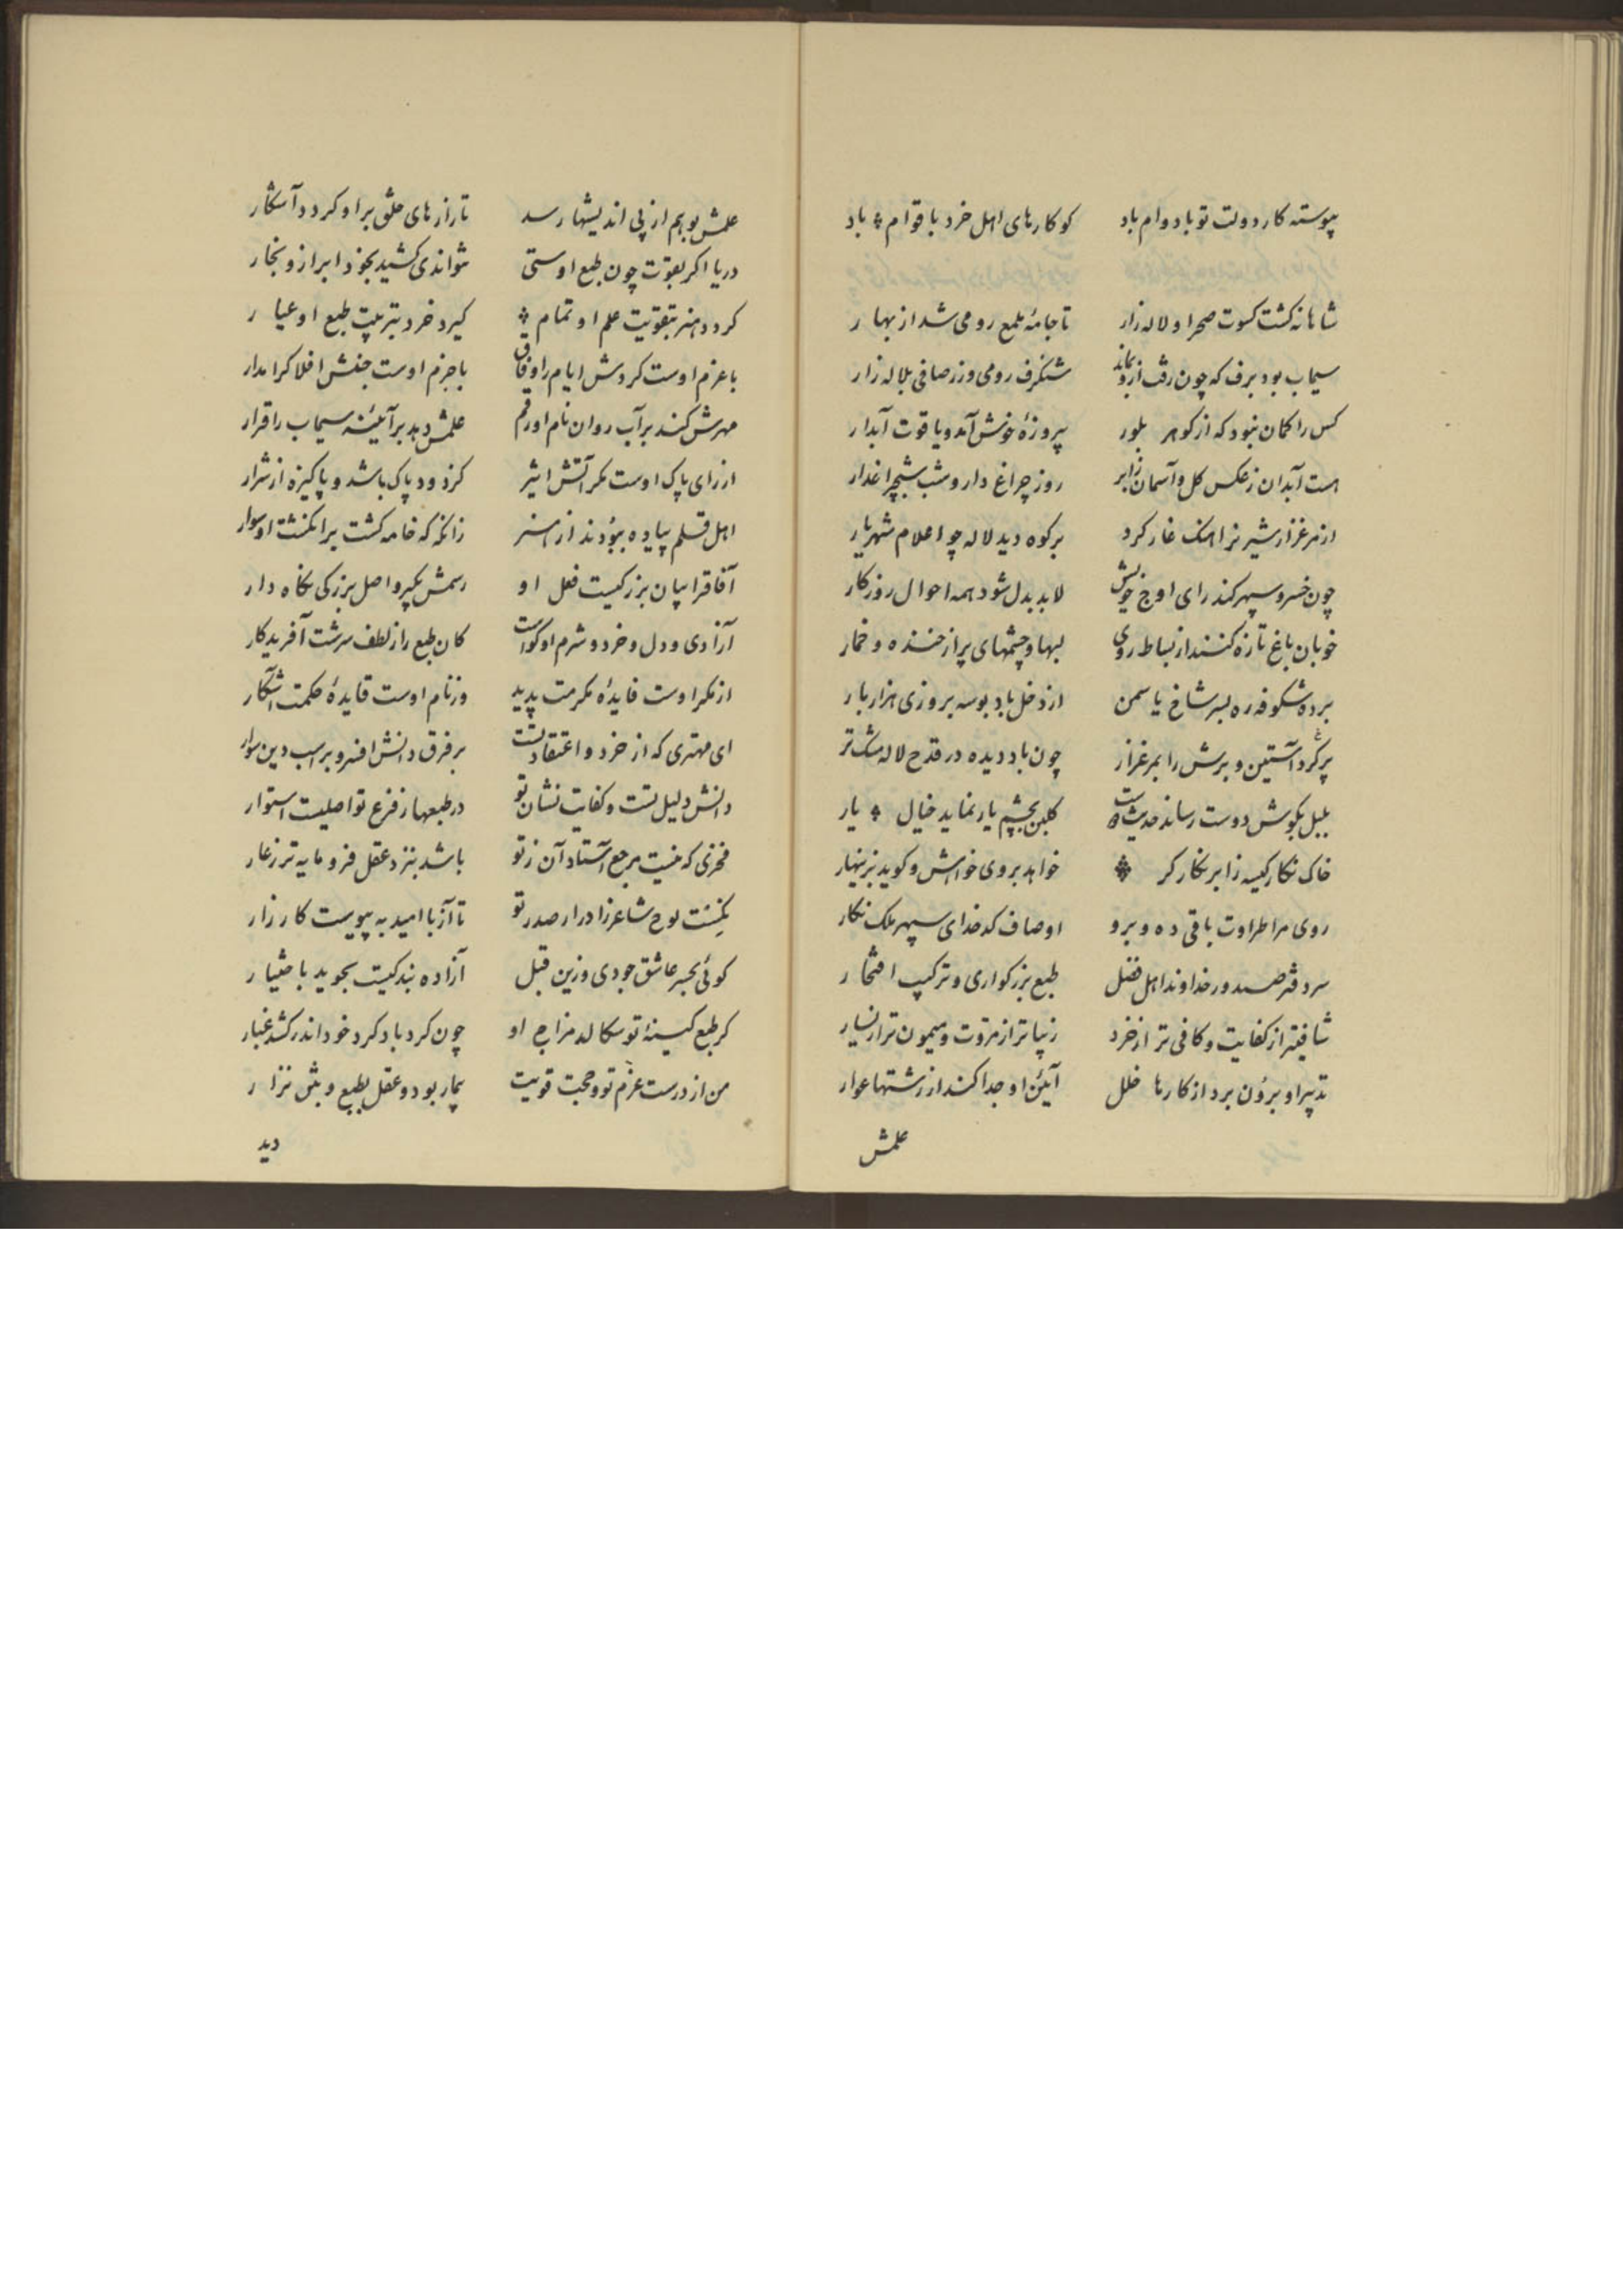 پیوسته کار دولت تو با دوام باد کو کارهای اهل خرد با قوام باد
شاهانه کشت کسوت صحرا و لاله زار تا جامهٔ ملمع رومی شد از بهار
سیماب بود برف که چون رفت ازو بماند شنکرف رومی و زر صافی بلاله زار
کس را کمان نبود که از کوهر بلور پیروزهٔ خوش آمد و یاقوت آبدار
هست آبدان ز عکس کل و آسمان ز ابر روز چراغ دار و شب شبچراغدار
از مرغزار شیر نر اهنک غار کرد بر کوه دید لاله چو اعلام شهریار
چون خسرو سپهر کند رای اوج خویش لابد بدل شود همه احوال روزکار
خوبان باغ تازه کنند از نباط روی لبها و چشمهای پر از خنده و خمار
برده شکوفه ره بسر شاخ یاسمن از دخل باد بوسه بروزی هزار بار
پر کرد آستین و برش را بمرغزار چون باد دیده در قدح لاله مشک تر
بلبل بکوش دوست رساند حدیث کلبن بچشم یار نماید خیال یار
خاک نکار کیسه ز ابر نکار کر خواهد بروی خواهش و کوید بزینهار
روی مرا طراوت باقی ده و برو اوصاف کدخدای سپهر ملک نکار
سر دفتر صدور خداوند اهل فضل طبع بزرکواری و ترکیب افتخار
شافیتر از کفایت و کافی تر از خرد زیباتر از مروت و میمون تر از یسار
تدبیر او برون برد از کارها خلل آیین او جدا کند از رشتها عوار
علمش
علمش بوهم از پی اندیشها رسد تا رازهای خلق بر او کردد آشکار
دریا اکر بقوت چون طبع اوستی نتواندی کشید بخود ابر ازو بخار
کردد هنر بتقویت علم او تمام کیرد خرد بتربیت طبع او عیار
با عزم اوست کردش ایام را وفاق با جزم اوست جنبش افلاک را مدار
مهرش کند بر آب روان نام او رقم علمش دهد بر آینه سیماب را قرار
از رای پاک اوست مکر آتش اثیر کز دود پاک باشد و پاکیزه از شرار
اهل قلم پیاده بودند از هنر زانکه که خامه کشت بر انکشت او سوار
آفاق را بیان بزرکیست فعل او رسمش بکیر و اصل بزرکی نکاه دار
آزادی و دل و خرد و شرم او کواست کان طبع را ز لطف سرشت آفریدکار
از مکر اوست فایدهٔ مکرمت پدید وز نام اوست قایدهٔ حکمت آشکار
ای مهتری که از خرد و اعتقاد تست بر فرق دانش افسر و بر اسب دین سوار
دانش دلیل تست و کفایت نشان تو در طبعها ز فرع تو اصلیست استوار
فخری که نیست مرجع آستاد آن ز تو باشد بنزد عقل فرومایه تر ز عار
ننشست لوح شاعر ز ادرار صدر تو تا آز با امید به پیوست کارزار
کوئی بحبر عاشق جودی وزین قبل آزاده بندکیت بجوید باختیار
کر طبع کینهٔ تو سکالد مزاج او چون کردباد کرد خود اندر کشد غبار
من از درست عزم تو و حجت قویت بیمار بود و عقل بطبع و بتن نزار
دید